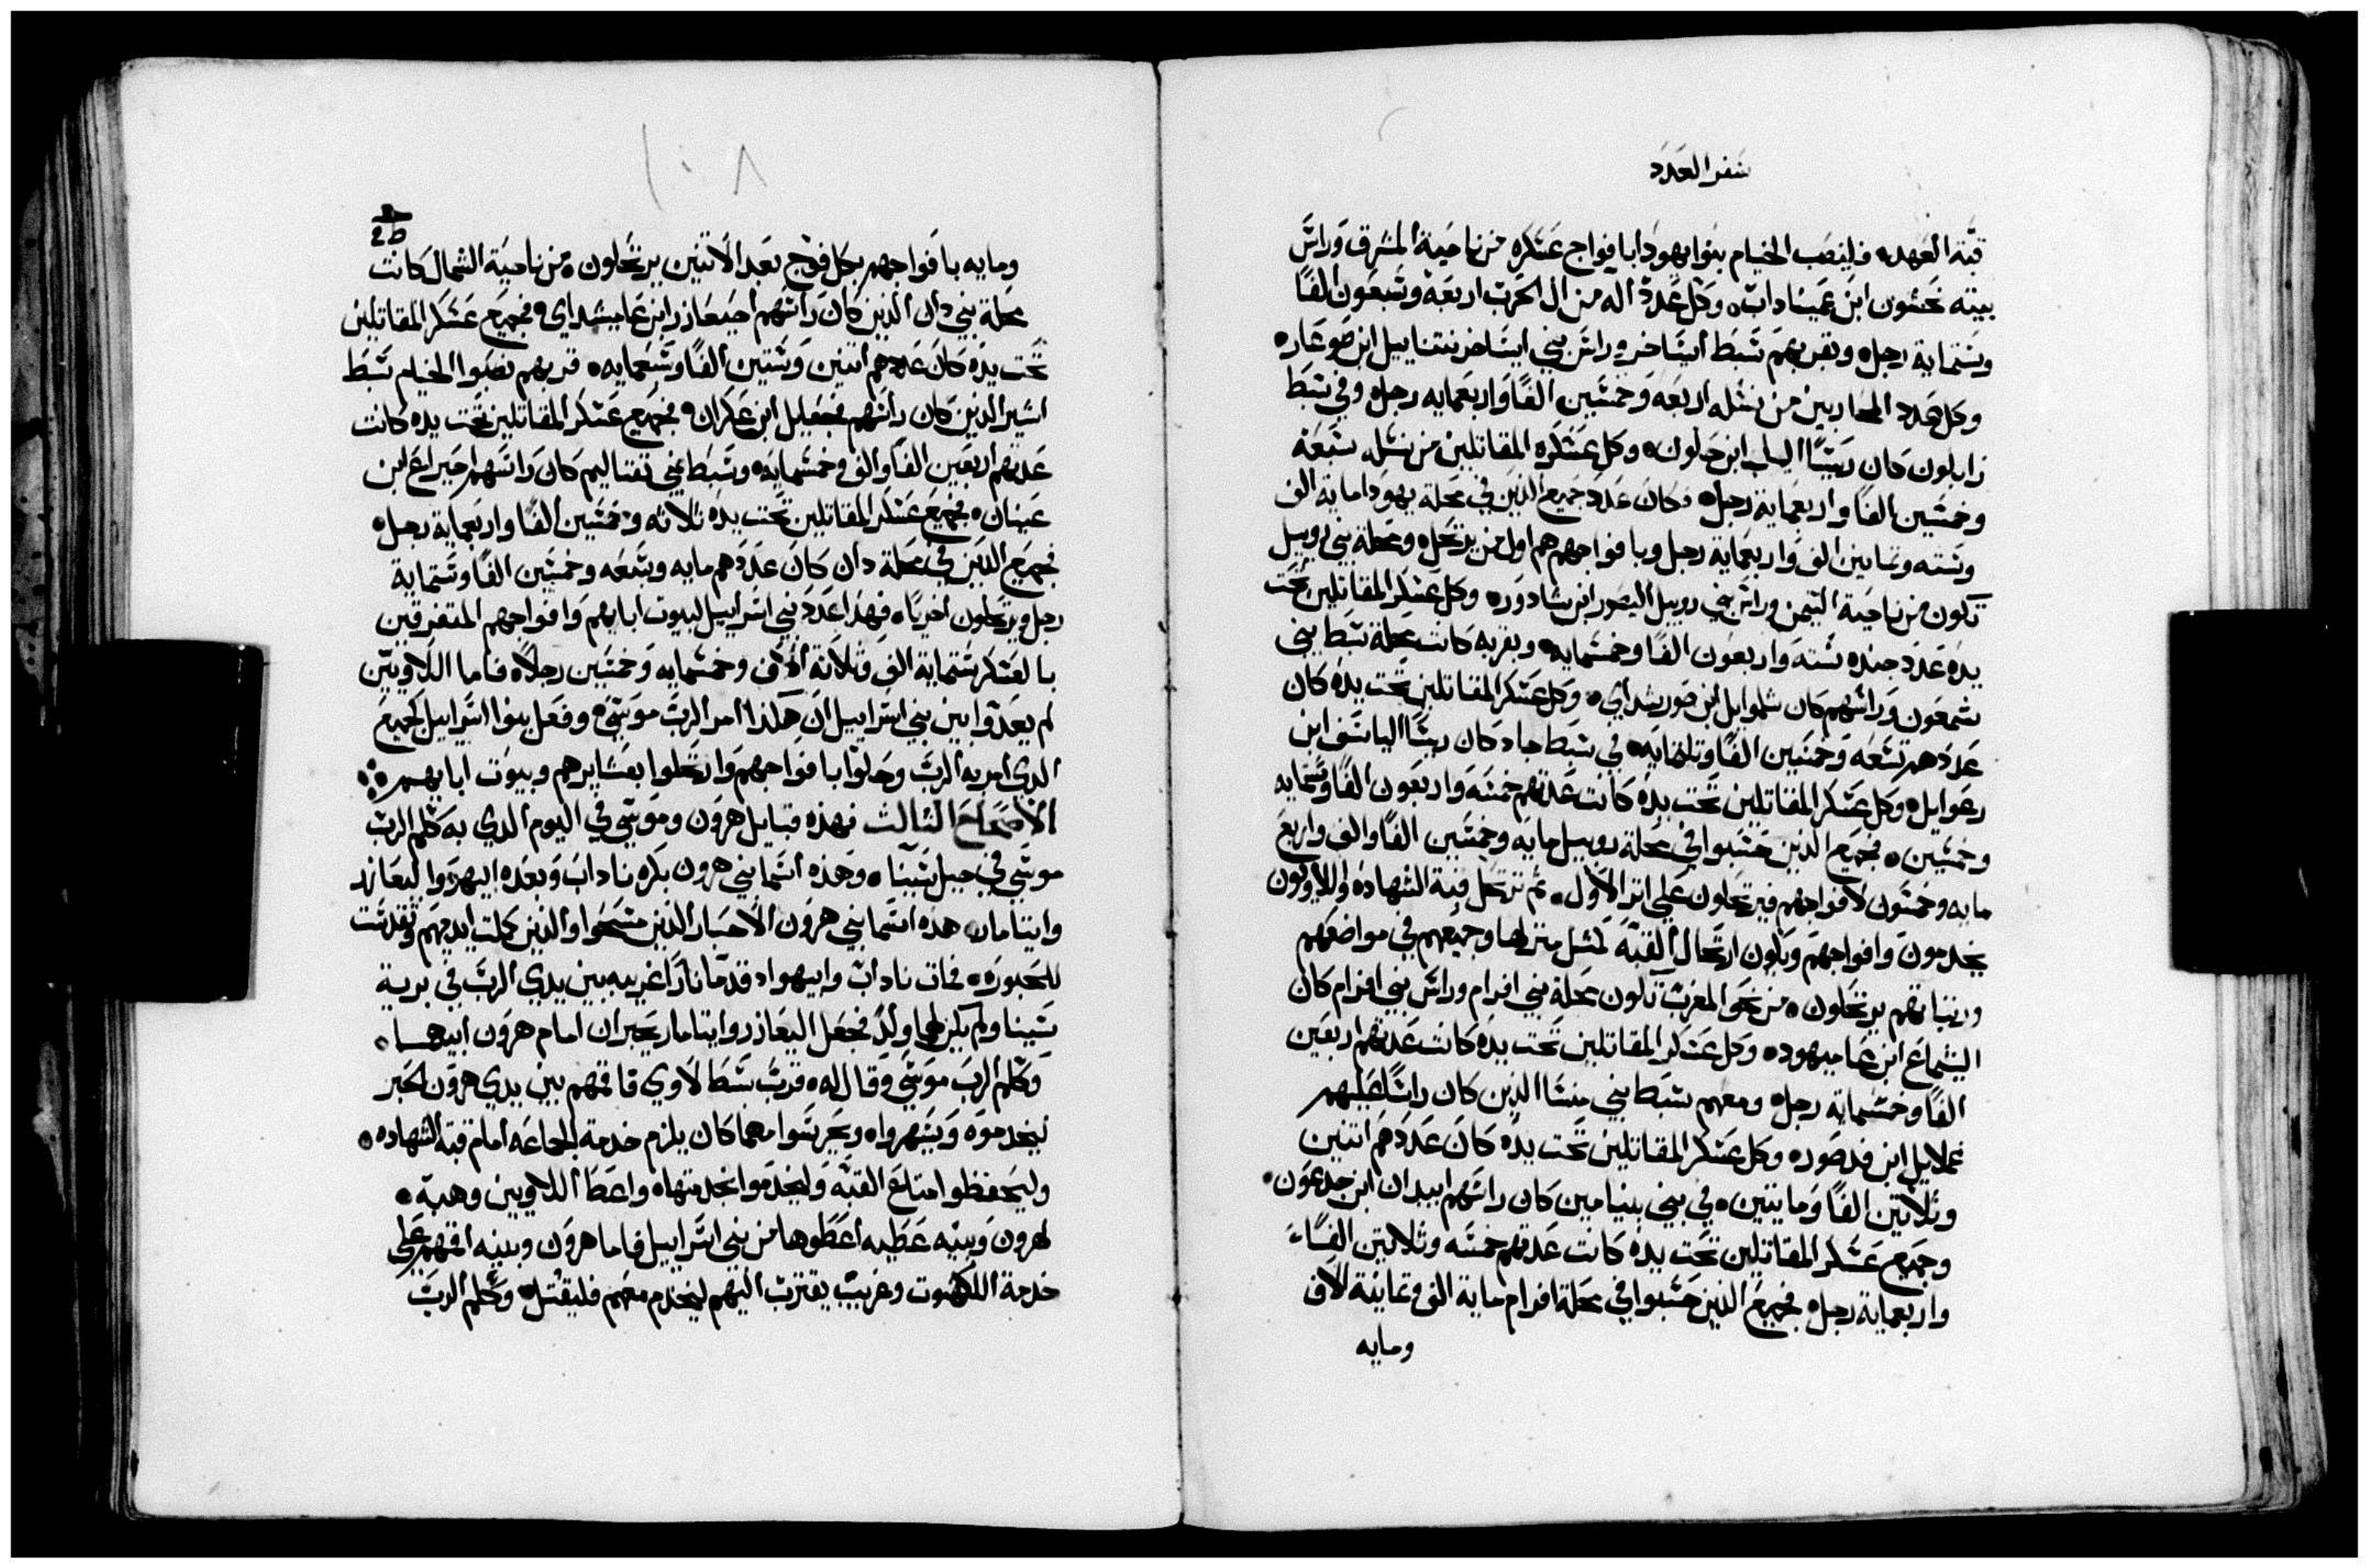 سفر العدد
قبة العهد. فلينصب الخيام بنوا يهودا بافواج عسكره من ناحية المشرق وراس
بيته نحشون ابن عميناداب. وكل عدد اله من ال الحرب اربعه وسبعون الفًا
وستماية رجل. وبقربهم سبط ايساخر وراس بني ايساخر نتناييل ابن صوعار.
وكل عدد المحاربين من نسله اربعه وخمسين الفًا واربعمايه رجل. وفي سبط
زابلون كان ريسًا الياب ابن حلون. وكل عسكره المقاتلين من نسله سبعة
وخمسين الفًا واربعماية رجل. وكان عدد جميع الذين في محلة يهودا ماية الف
وسته وثمانين الف واربعماية رجل وبافواجهم هم اول من يرتحل. ومحلة بني روبيل
تكون من ناحية التيمن وراس بني روبيل اليصور ابن شادور. وكل عسكر المقاتلين تحت
يده عدد جنده سته واربعون الفًا وخمسمايه. وبقربه كانت محلة سبط بني
شمعون وراسهم كان شلموايل ابن صوريشداي. وكل عسكر المقاتلين تحت يده كان
عددهم تسعه وخمسين الفًا وتلتمايه. في سبط جاد كان ريسًا الياسف ابن
رعوايل. وكل عسكر المقاتلين تحت يده كانت عدتهم خمسه واربعون الفًا وستمايه
وخمسين. فجميع الذين حسبوا في محلة روبيل مايه وخمسين الفًا والف واربع
مايه وخمسون لافواجهم فيرتحلون على اتر الاول. ثم ترتحل قبة الشهاده واللاويون
يخدمون وافواجهم ويكون ارتحال القبه لمثل منزلها وجميعهم في مواضعهم
ورتباتهم يرتحلون. من نحو المغرب تكون محلة بني افرام وراس بني افرام كان
اليشماع ابن عاميهود. وكل عسكر المقاتلين تحت يده كانت عدتهم اربعين
الفًا وخمسماية رجل. ومعهم سبط بني منسا الذين كان راسًا عليهم
غملاييل ابن فدصور. وكل عسكر المقاتلين تحت يده كان عددهم اتنين
وثلاتين الفًا ومايتين. في بني بنيامين كان راسهم ابيدان ابن جدعون.
وجميع عسكر المقاتلين تحت يده كانت عدتهم خمسه وثلاتين الفًا
واربعماية رجل. فجميع الذين حسبوا في محلة افرام ماية الف وثمانية الاف
ومايه
١٠٨
ومايه بافواجهم بكل فوج بعد الاتنين يرتحلون. من ناحية الشمال كانت
محلة بني دان الذين كان راسهم احيعازر ابن عاميشداي. فجميع عسكر المقاتلين
تحت يده كان عددهم اتنين وستين الفًا وسبعمايه. قربهم نصبوا الخيام سبط
اشير الذين كان راسهم فجعيل ابن عكران. فجميع عسكر المقاتلين تحت يده كانت
عدتهم اربعين الفًا والف وخمسمايه. وسبط بني نفتاليم كان راسهم احيراع ابن
عينان. فجميع عسكر المقاتلين تحت يده ثلاثه وخمسين الفًا واربعماية رجل.
فجميع الذين في محلة دان كان عددهم مايه وسبعه وخمسين الفًا وستماية
رجل ويرتحلون اخيرًا. فهذا عدد بني اسراييل لبيوت ابايهم وافواجهم المتفرقين
بالعسكر ستماية الف وثلاثة الاف وخمسمايه وخمسين رجلًا. فاما اللاويين
لم يعدوا بين بني اسراييل ان هكذا امر الرب موسى. وفعل بنوا اسراييل كجميع
الذي امر به الرب وحلوا بافواجهم وارتحلوا بعشايرهم وبيوت ابايهم
الاصحاح الثالث فهذه قبايل هرون وموسى في اليوم الذي به كلم الرب
موسى في جبل سينا. وهذه اسما بني هرون بكره ناداب وبعده ابيهوا اليعازر
وايتامار. هذه اسما بني هرون الاحبار الذين مسحوا والذين كملت ايديهم وتقدست
للحبوره. فمات ناداب وابيهوا اذ قدما نارًا غريبه بين يدي الرب في برية
سينا ولم يكن لهما ولدٌ فجعل اليعازر وايتامار يحبران امام هرون ابيهما.
وكلم الرب موسى وقال له. قرب سبط لاوي فاقمهم بين يدي هرون الحبر
ليخدموه ويسهروا. ويحرسوا مهما كان يلزم خدمة الجماعه امام قبة الشهاده.
وليحفظوا امتاع القبه وليخدموا بخدمتها. واعط اللاويين وهبة.
لهرون وبنيه عطيه اعطوها من بني اسراييل فاما هرون وبنيه اقمهم على
خدمة الكهنوت وغريب يقترب اليهم ليخدم معهم فليقتل. وكلم الرب